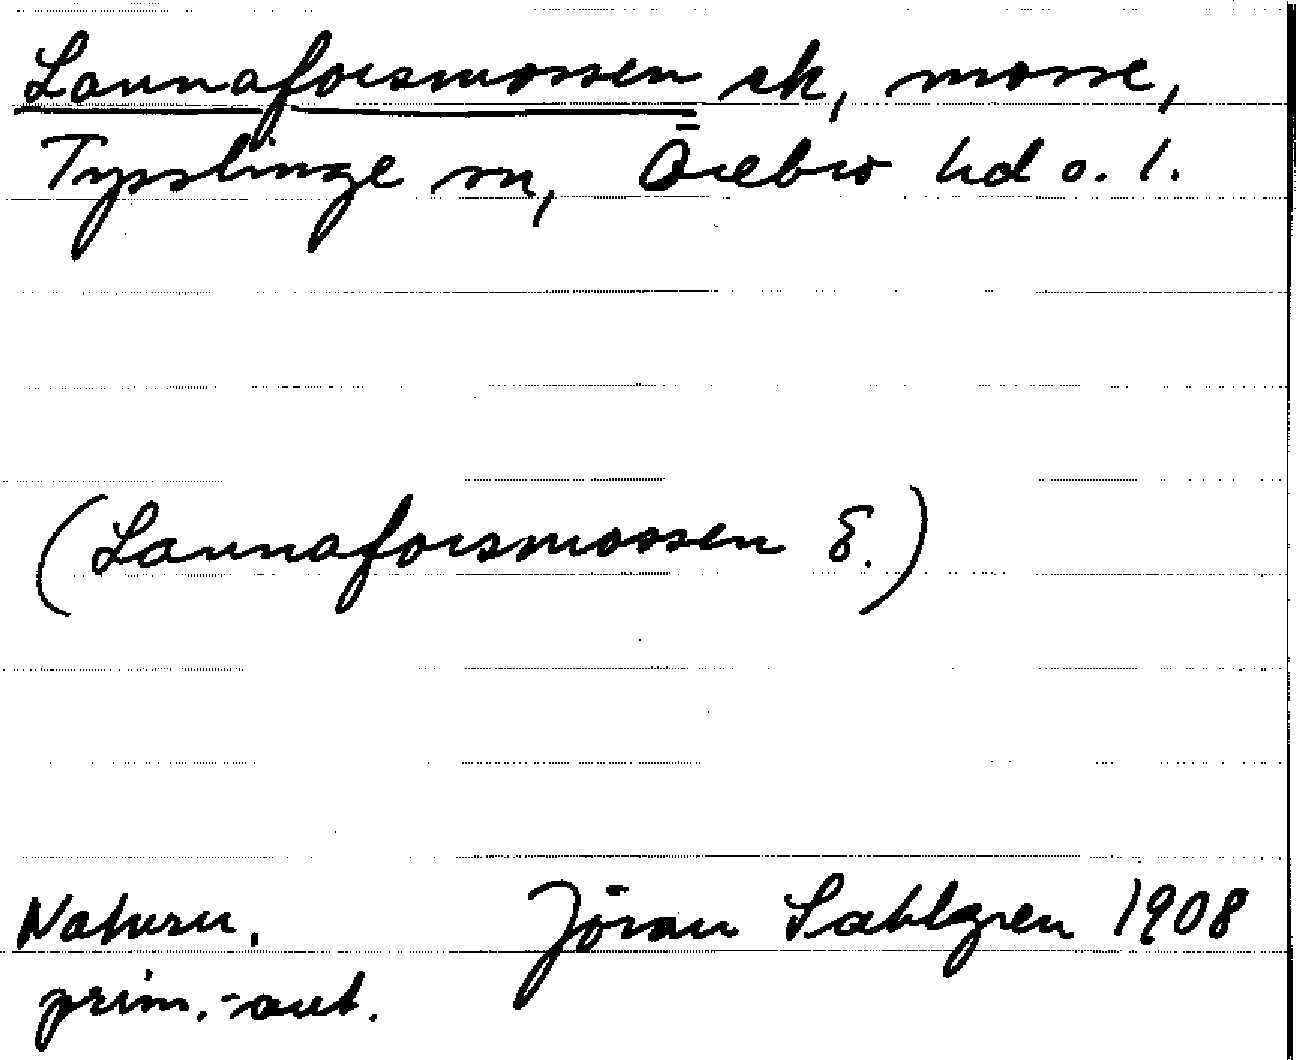 Lannaforsmossen sk, mosse,
Tysslinge sn, Örebro hd o. l.
(Lannaforsmossen E.)
Naturn. Jöran Sahlgren 1908
prim.-aut.